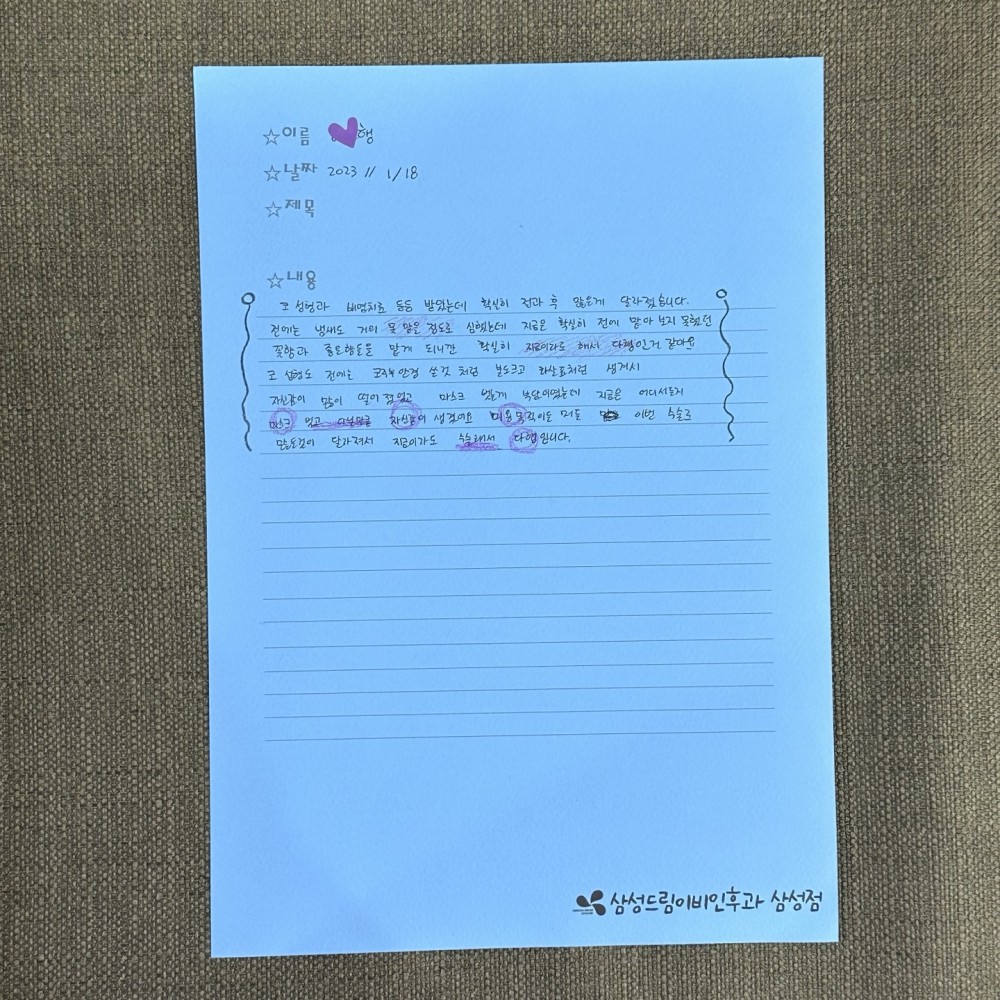 ☆이름 행
☆날짜 2023 // 1/18
☆제목
☆내용
코 성형과 비염치료 등등 받았는데 확실히 전과 후 많은게 달라졌습니다.
전에는 냄새도 거의 못 맡은 정도로 심했는데 지금은 확실히 전에 맡아 보지 못했던
꽃향과 좋은향들을 맡게 되니깐 확실히 지금이라도 해서 다행인거 같아요
코 성형도 전에는 안경 쓴것 처럼 화살표처럼 생겨서
자신감이 많이 떨어졌었고 마스크 벗는게 부담이였는데 지금은 어디서든지
마스크 벗고 자신감이 생겼어요 이번 수술로
많은것이 달라져서 지금이라도 수술해서 다행입니다.
삼성드림이비인후과 삼성점